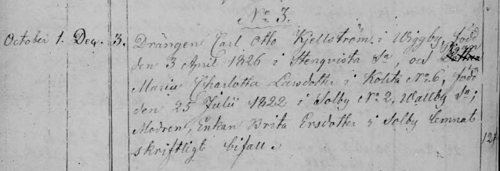 No 3.
October 1. Dec. 3. Drängen Carl Otto Kjellström i Wiggby, född
den 3 April 1826 i Stenqvista Sn, och
Maria Charlotta Larsdotter i No 6, född
den 25 Julii 1822 i Solby No 2, Wallby Sn;
Modren, Enkan Brita Ersdotter i Solby lemnat
skriftligt bifall.
121